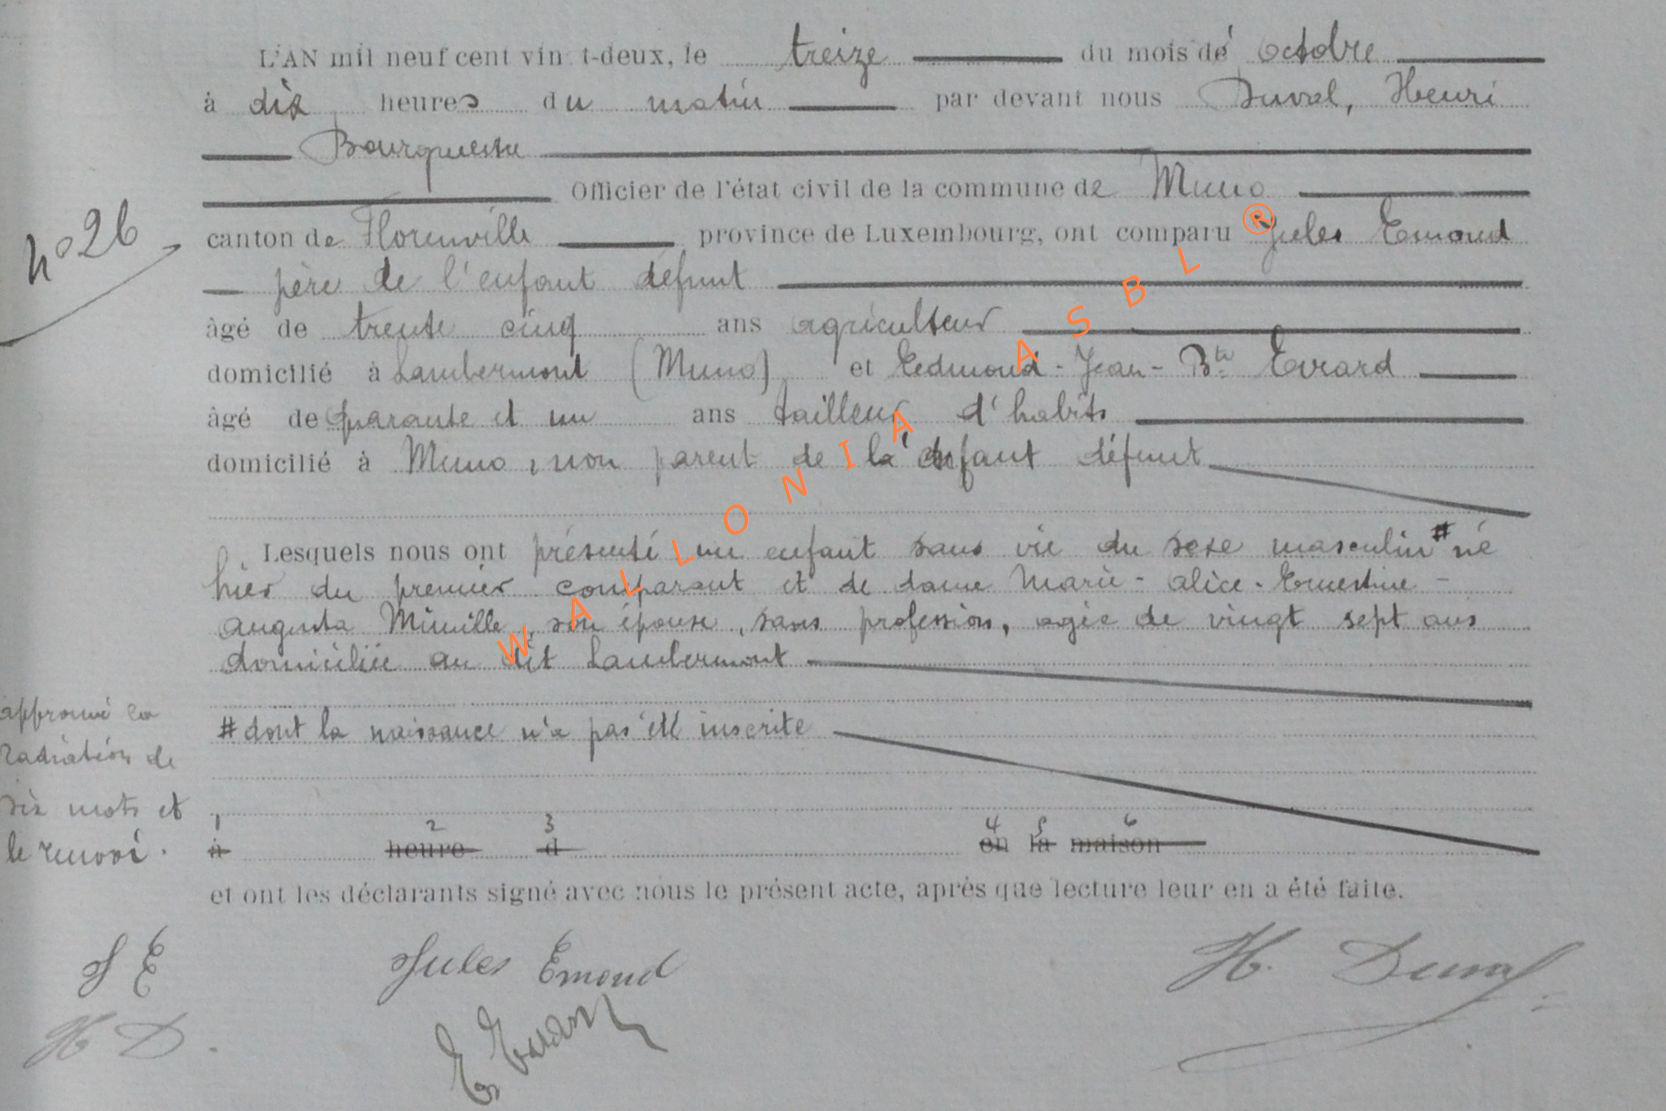 L'AN mil neuf cent vin t-deux, le treize du mois de octobre
à dix heures du matin par devant nous Duval, Henri
Bourgmestre
Officier de l'état civil de la commune de Muno
N° 26
canton de Florenville province de Luxembourg, ont comparu Jules Emond
père de l'enfant défunt
âgé de trente cinq ans agriculteur
domicilié à Lambermont (Muno) et Edmond-Jean-Bte Evrard
âgé de quarante et un ans tailleur d'habits
domicilié à Muno, non parent de l'enfant défunt
Lesquels nous ont présenté un enfant sans vie du sexe masculin # né
hier du premier comparant et de dame Marie-Alice-Ernestine-
Augusta Minville, son épouse, sans profession, agée de vingt sept ans
domiciliée au dit Lambermont
# dont la naissance n'a pas été inscrite
approuvé la
radiation de
six mots et
le renvoi.
1 2 3 4 5 6
à heure d en la maison
et ont les déclarants signé avec nous le présent acte, après que lecture leur en a été faite.
J E Jules Emond H. Duval
H D. E Evrard
WALLONIA ASBL ®